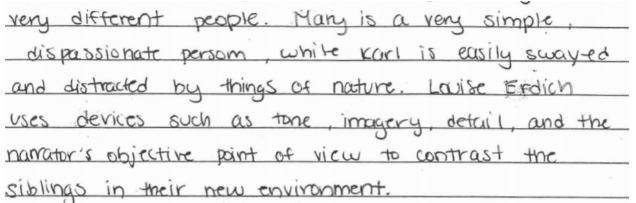 very different people. Mary is a very simple,
dispassionate person, while Karl is easily swayed
and distracted by things of nature. Louise Erdich
uses devices such as tone, imagery, detail, and the
narrator's objective point of view to contrast the
siblings in their new environment.